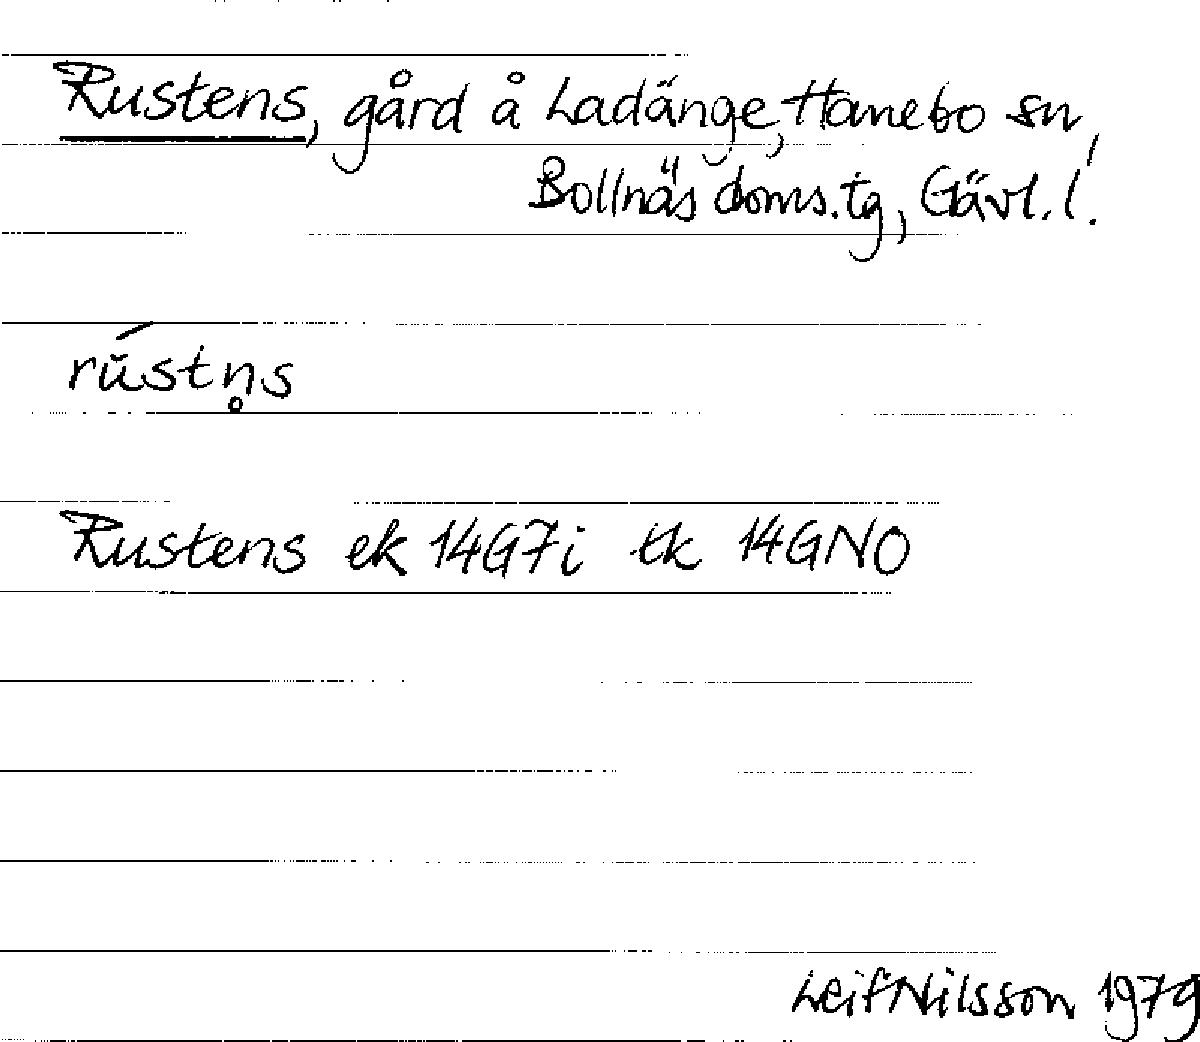 Rustens, gård å Ladänge, Hanebo sn,
Bollnäs doms.tg, Gävl.l.
rŭ́stn̥s
Rustens ek 14G7i tk 14GNO
Leif Nilsson 1979